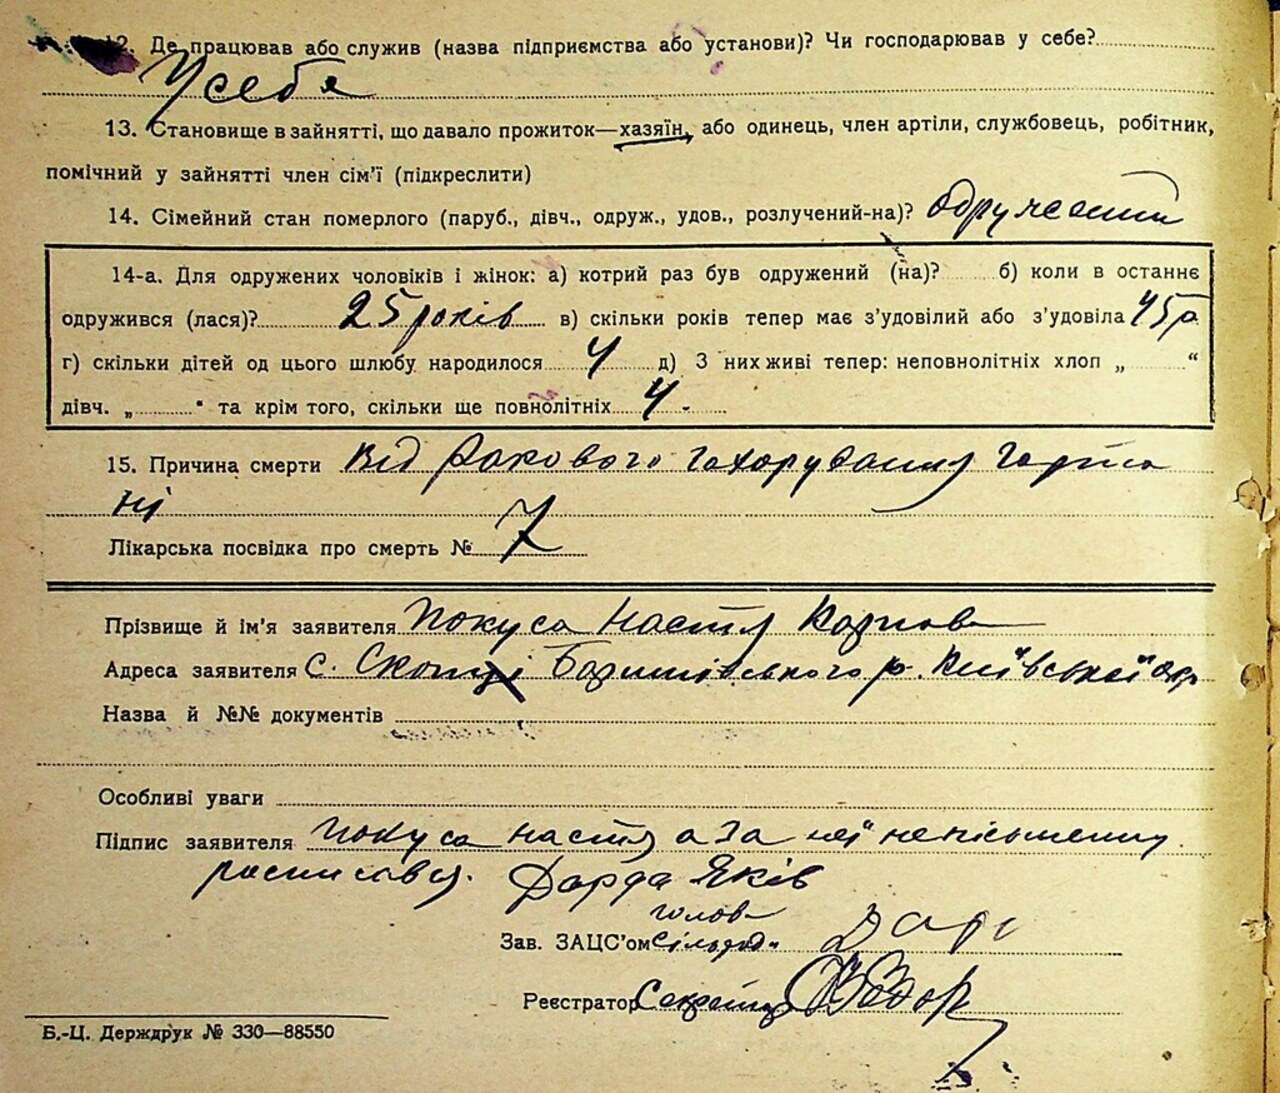 12. Де працював або служив (назва підприємства або установи)? Чи господарював у себе?
У себе
13. Становище в зайнятті, що давало прожиток—хазяїн, або одинець, член артіли, службовець, робітник,
помічний у зайнятті член сім'ї (підкреслити)
14. Сімейний стан померлого (паруб., дівч., одруж., удов., розлучений-на)? одружений
14-а. Для одружених чоловіків і жінок: а) котрий раз був одружений (на)? б) коли в останнє
одружився (лася)? 25 років в) скільки років тепер має з'удовілий або з'удовіла 45 р.
г) скільки дітей од цього шлюбу народилося 4 д) З них живі тепер: неповнолітніх хлоп „ “
дівч. „ “ та крім того, скільки ще повнолітніх 4 -
15. Причина смерти від ракового захорування горта
ні
Лікарська посвідка про смерть № 7
Прізвище й ім'я заявителя Покуса Настя Карповна
Адреса заявителя с. Скопці Баришівського р. Київської обл
Назва й №№ документів
Особливі уваги
Підпис заявителя Покуса Настя а за неї неписьменну
росписався. Дарда Яків
голова
Зав. ЗАЦС'ом сільради
Реєстратор Секретар
Б.-Ц. Держдрук № 330—88550